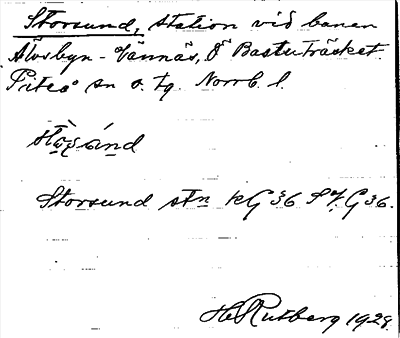 Storsund, station vid banan
Älvsbyn - Vännäs, Ö Basturträsket.
Piteå sn o. tg. Norrb. l.
Storsund stn kG 36 G 36.
H Rutberg 1928.